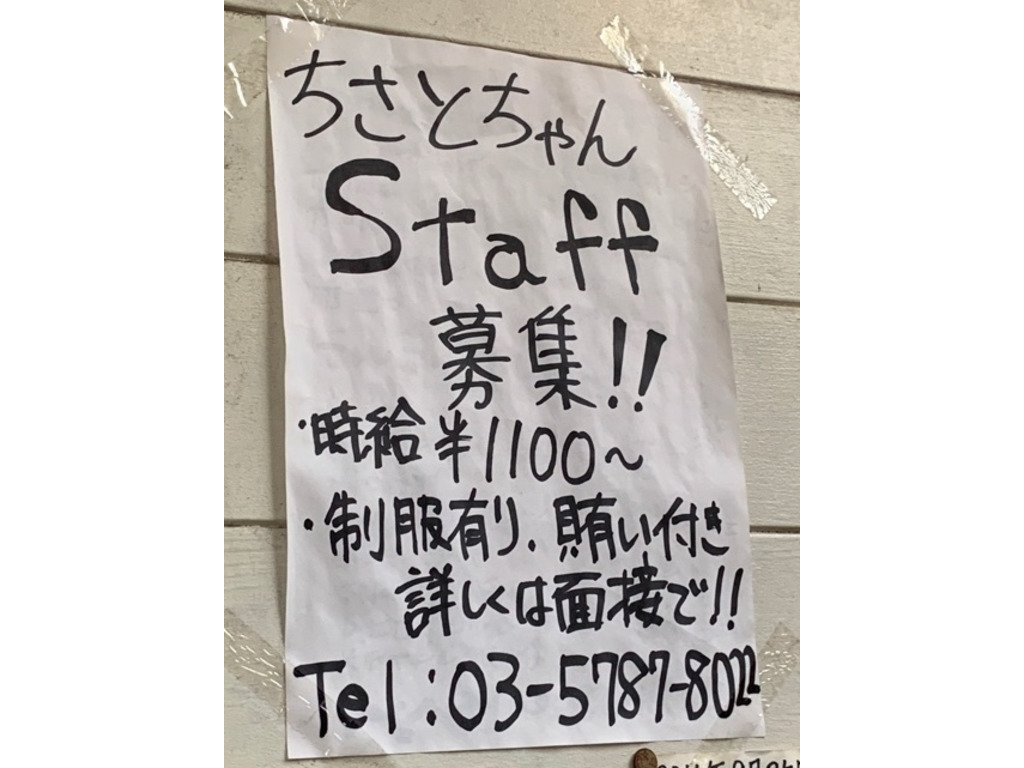 ちさとちゃん
Staff
募集!!
・時給¥1100〜
・制服有り、賄い付き
詳しくは面接で!!
Tel:03-5787-8022